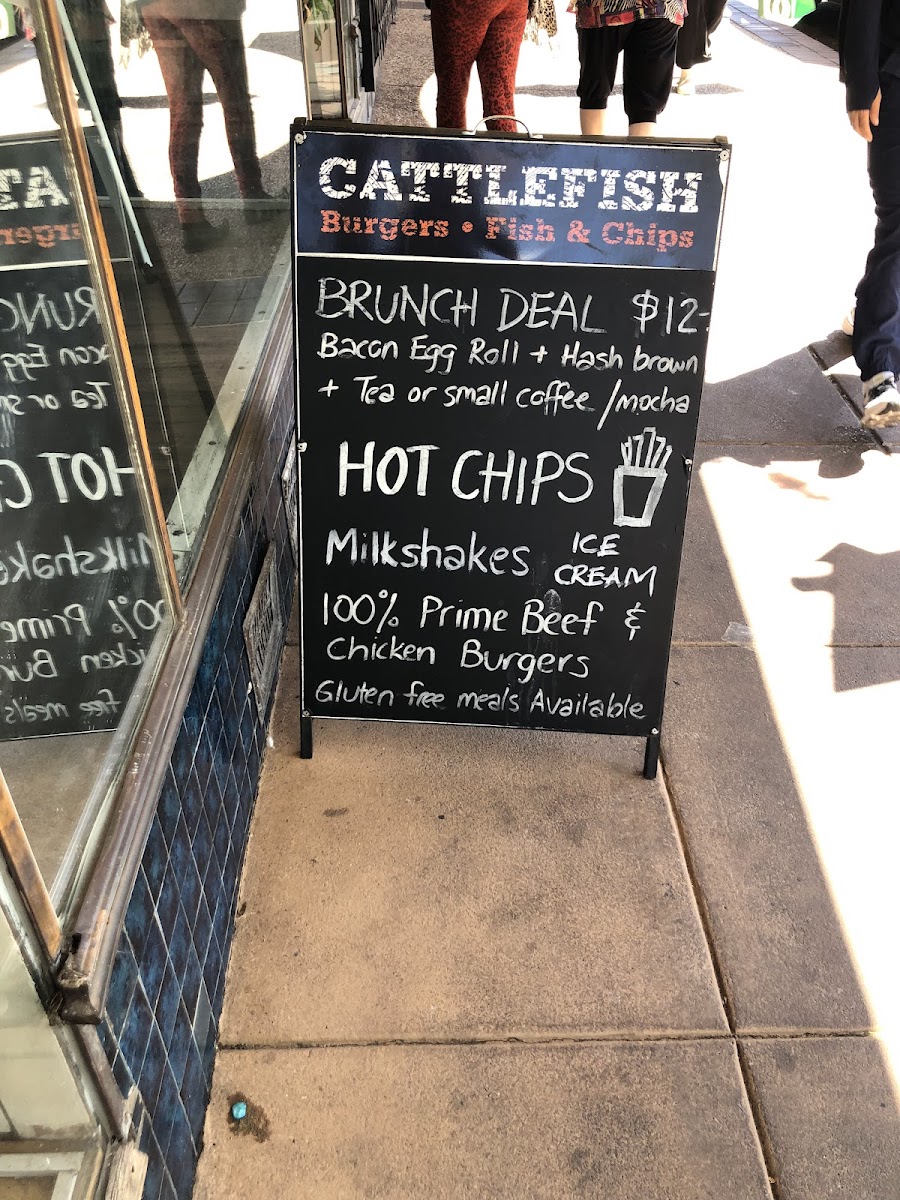 CATTLEFISH
Burgers • Fish & Chips
BRUNCH DEAL $12-
Bacon Egg Roll + Hash brown
+ Tea or small coffee / mocha
HOT CHIPS
Milkshakes ICE CREAM
100% Prime Beef &
Chicken Burgers
Gluten free meals Available